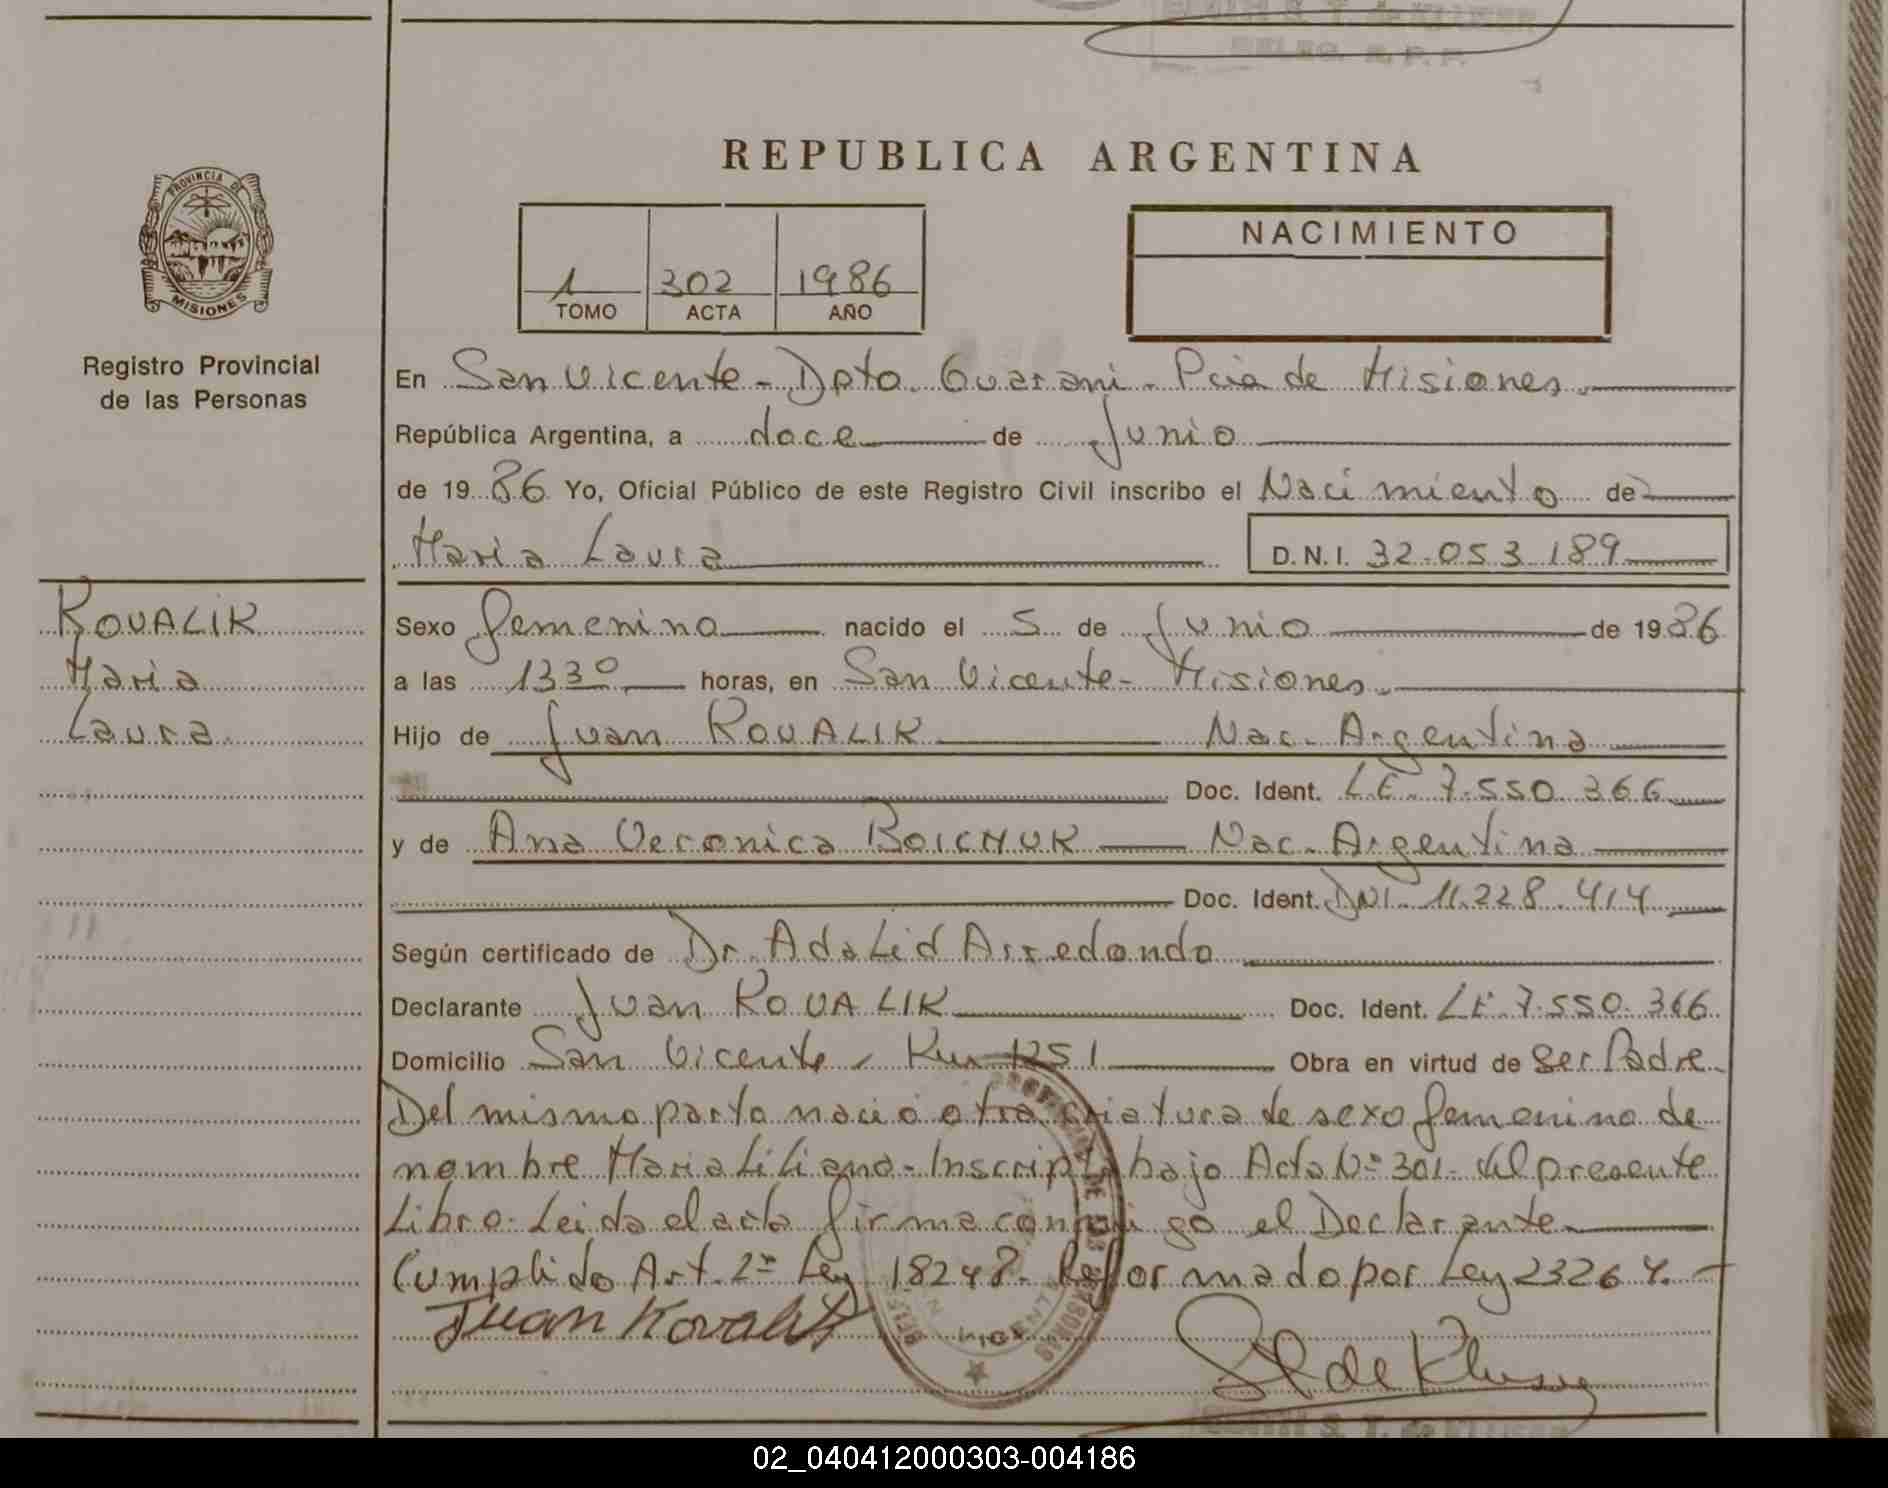 DELEG. R. P. P.
REPUBLICA ARGENTINA
PROVINCIA DE
MISIONES
Registro Provincial
de las Personas
1 302 1986
TOMO ACTA AÑO
NACIMIENTO
En San Vicente - Dpto. Guarani - Pcia de Misiones.
República Argentina, a doce de Junio
de 1986 Yo, Oficial Público de este Registro Civil inscribo el Nacimiento de
Maria Laura D.N.I. 32.053.189
KOVALIK
Maria
Laura
Sexo femenino nacido el 5 de Junio de 1986
a las 1330 horas, en San Vicente - Misiones.
Hijo de Juan KOVALIK Nac. Argentina
Doc. Ident. LE. 7.550.366
y de Ana Veronica BOICHUK Nac. Argentina
Doc. Ident. DNI. 11.228.414
Según certificado de Dr. Adalid Arredondo
Declarante Juan KOVALIK Doc. Ident. LE. 7.550.366
Domicilio San Vicente - Km 1251 Obra en virtud de Ser Padre.
Del mismo parto nació otra criatura de sexo femenino de
nombre Maria Liliana - Inscripta bajo Acta Nº 301 - del presente
Libro - Leida el acta firma conmigo el Declarante
Cumplido Art. 2º Ley 18248 - Reformado por Ley 23264.
Juan Kovalik
02_040412000303-004186